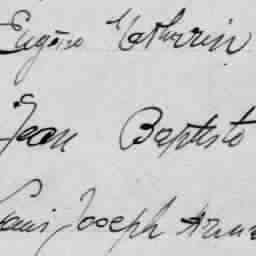 Eugène Mathurin
Jean Baptiste
Louis Joseph Arman